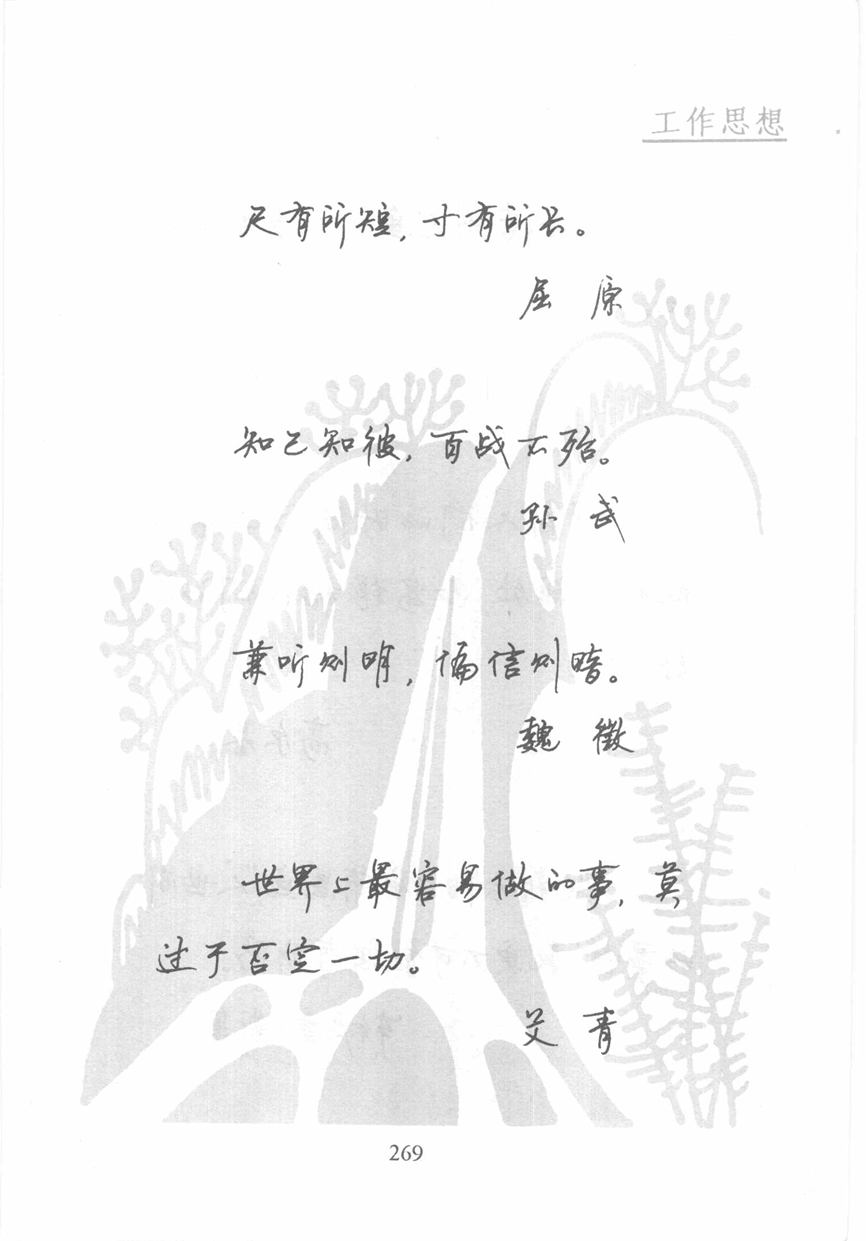 工作思想
尺有所短,寸有所长。
屈 原
知己知彼,百战不殆。
孙 武
兼听则明,偏信则暗。
魏 徵
世界上最容易做的事,莫
过于否定一切。
艾 青
269